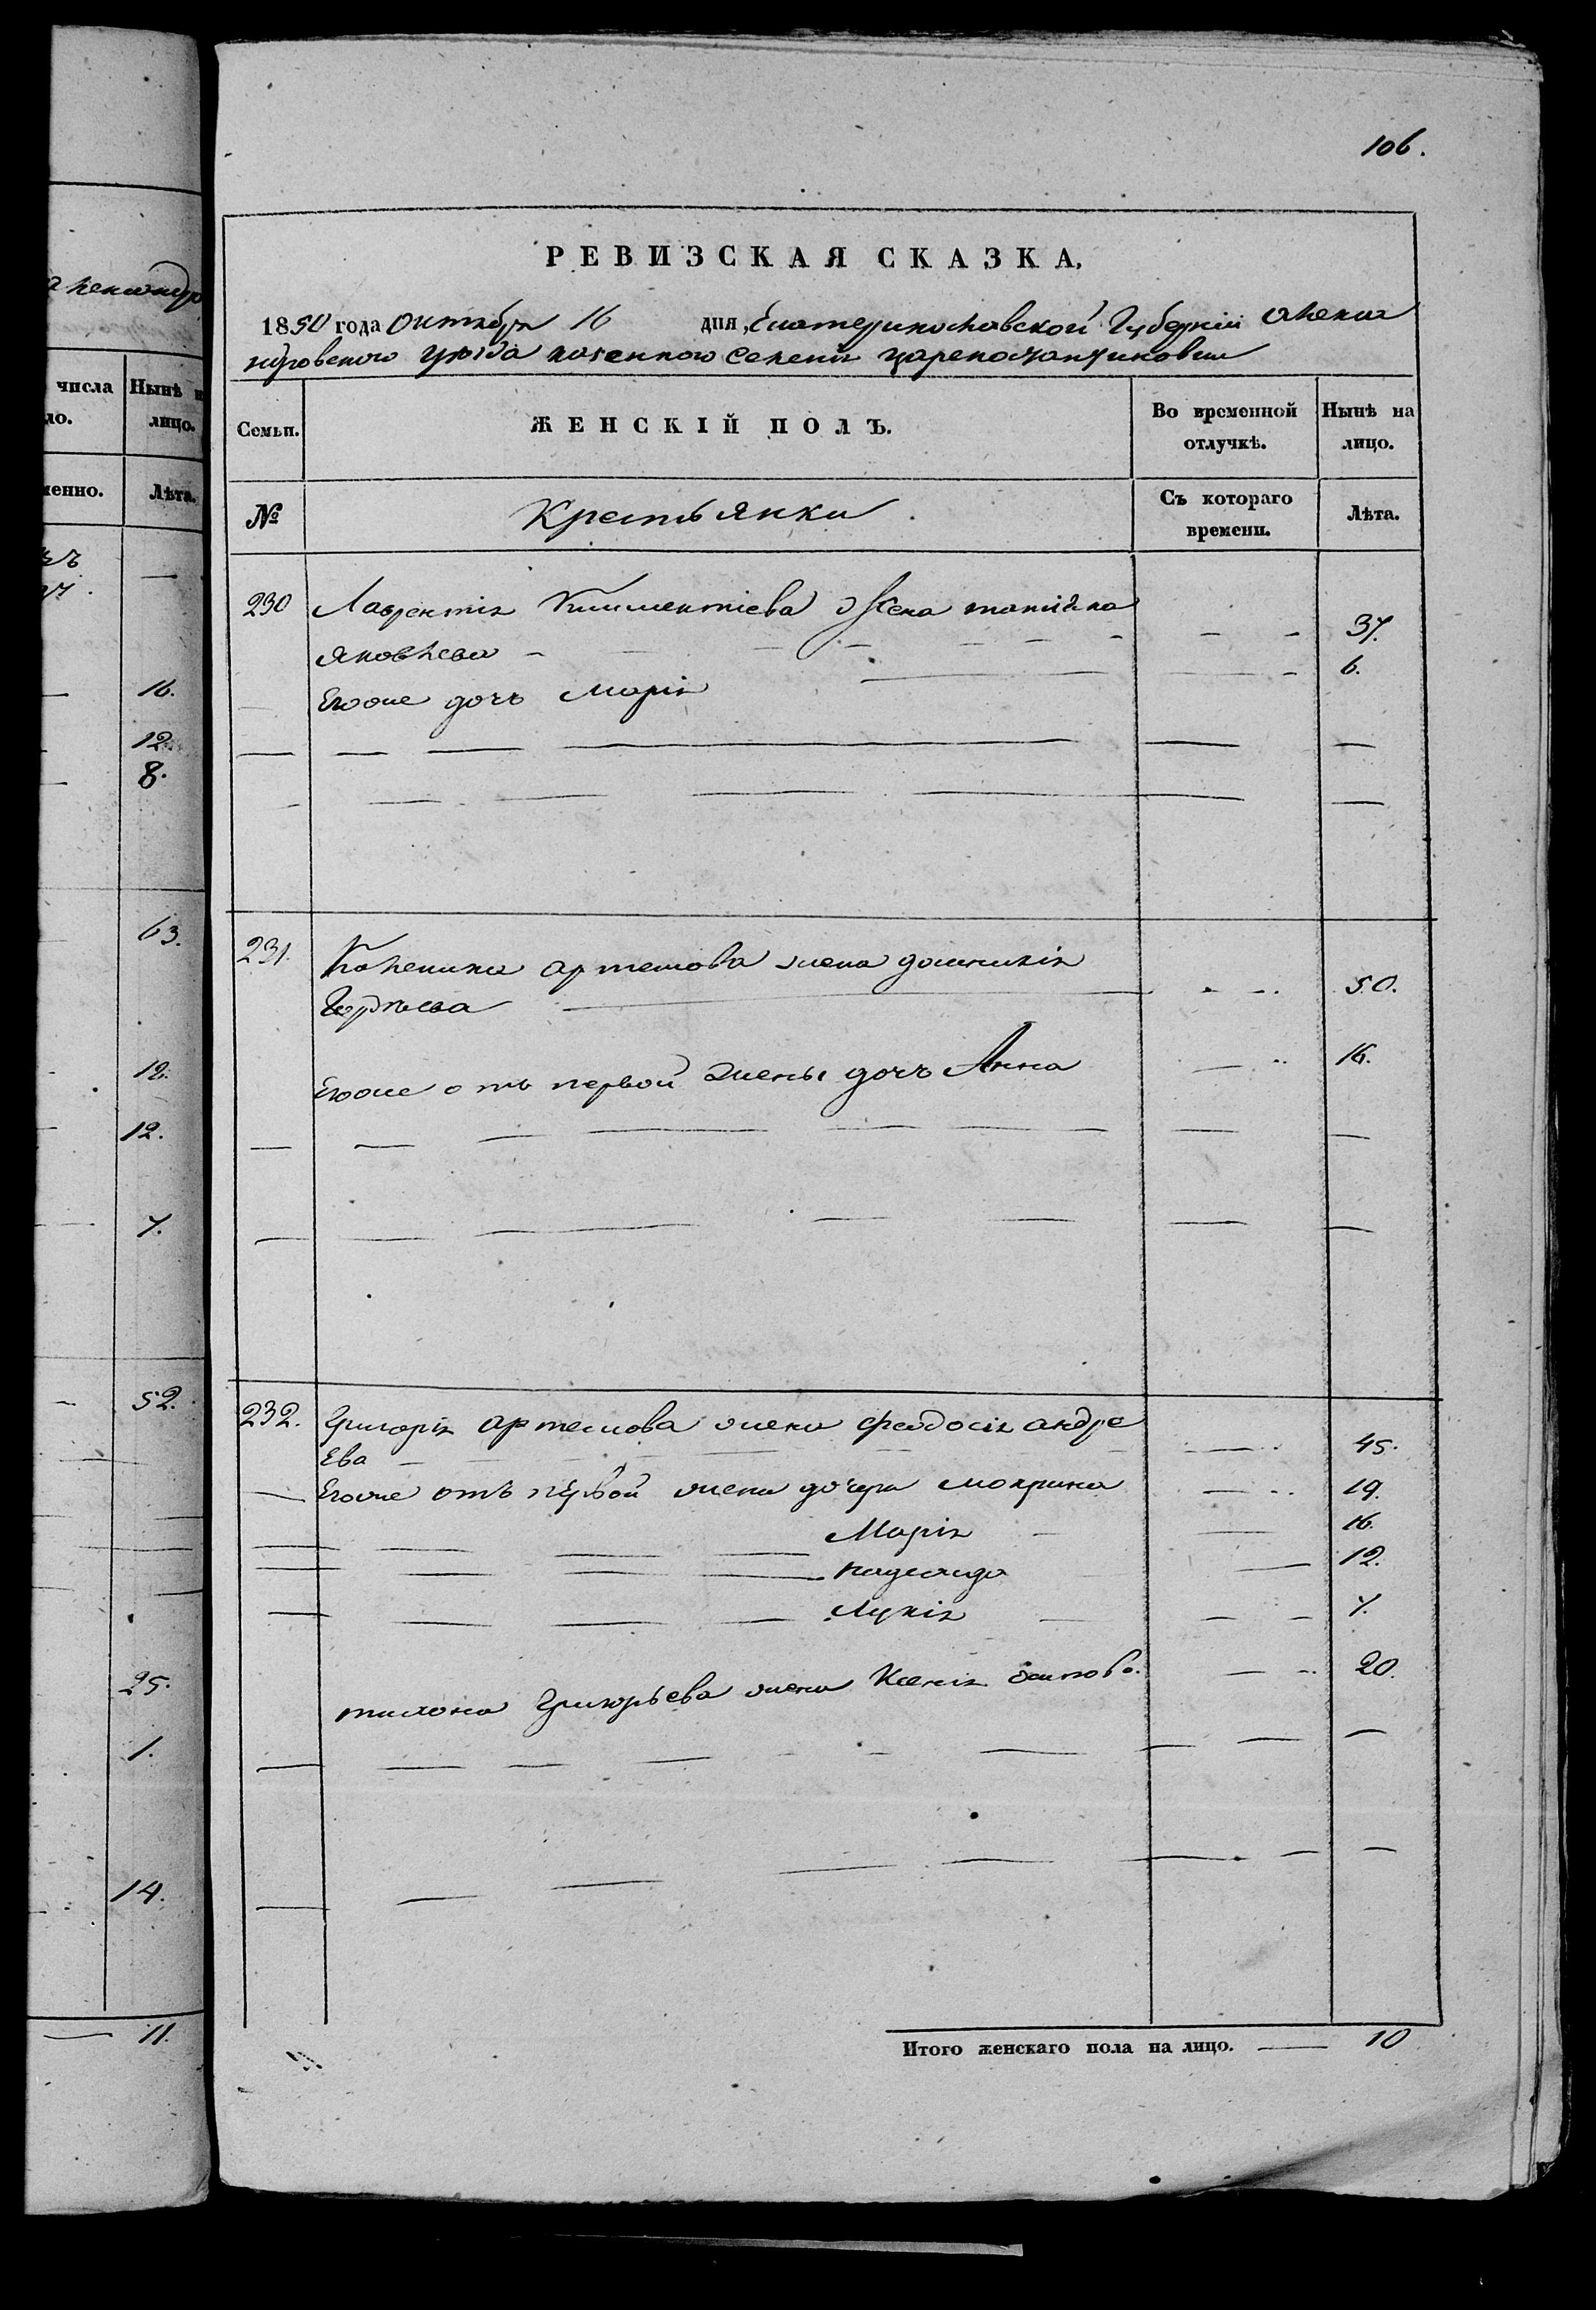 106.
а лександро
числа
ло.
Нынѣ н
лицо.
менно.
Лѣта.
16.
12.
8.
63.
12.
12.
7.
52.
25.
1.
14.
11.
РЕВИЗСКАЯ СКАЗКА,
1850 года Октября 16 дня, Екатеринославской Губерніи Алексан
дровского уѣзда казенного селенія
Семьи.
ЖЕНСКІЙ ПОЛЪ.
Во временной отлучкѣ.
Нынѣ на лицо.
№
Крестьянки
Съ котораго времени.
Лѣта.
230 Лаврентія Климентіева Жена татіяна
Яковлева 37.
Егоже дочь Марія 6.
231. Калиника артемова жена домникія
50.
Егоже отъ первой жены дочь Анна 16.
232. Григорія артемова жена феодосія андре
Ева 45.
Егоже отъ первой жены дочери мокрина 19.
Марія 16.
12.
Лукія 7.
тихона Григорьева жена Ксенія 20.
Итого женскаго пола на лицо. 10